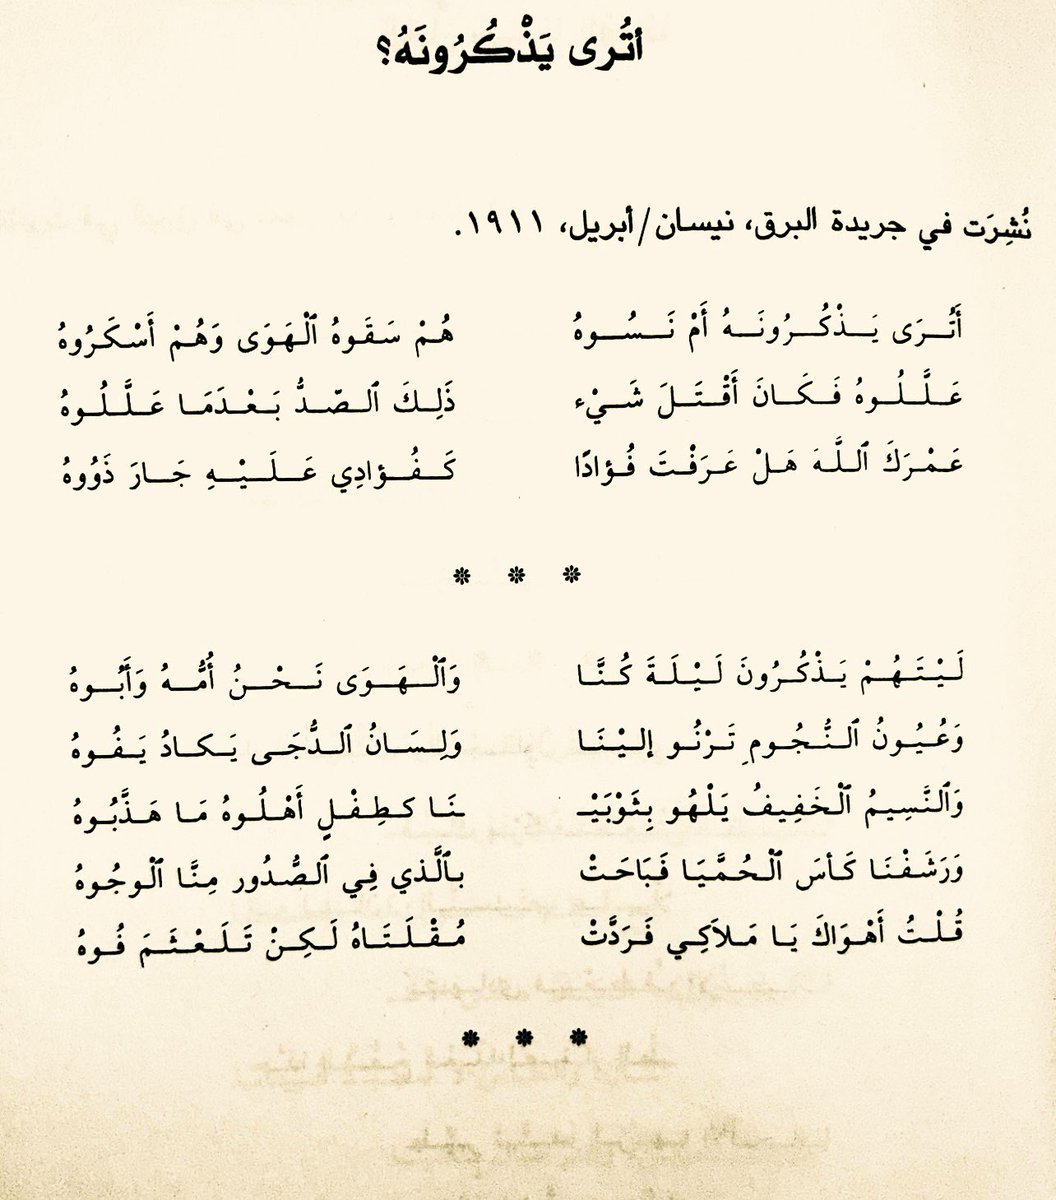 أتُرى يَذْكُرُونَهُ؟
نُشِرَت في جريدة البرق، نيسان/أبريل، ١٩١١.
أَتُرَى يَذْكُرُونَهُ أَمْ نَسُوهُ هُمْ سَقَوهُ ٱلْهَوَى وَهُمْ أَسْكَرُوهُ
عَلَّلُوهُ فَكَانَ أَقْتَلَ شَيْء ذَلِكَ ٱلصّدُّ بَعْدَمَا عَلَّلُوهُ
عَمْرَكَ ٱللَّهَ هَلْ عَرَفْتَ فُؤادًا كَفُؤادِي عَلَيْهِ جَارَ ذَوُوهُ
* * *
لَيْتَهُمْ يَذْكُرُونَ لَيْلَةَ كُنَّا وَٱلْهَوَى نَحْنُ أُمُّهُ وَأَبُوهُ
وَعُيُونُ ٱلنُّجُومِ تَرْنُو إلَيْنَا وَلِسَانُ ٱلدُّجَى يَكادُ يَفُوهُ
وَٱلنَّسِيمُ ٱلْخَفِيفُ يَلْهُو بِثَوْبَيْـ ـنَا كطِفْلٍ أَهْلُوهُ مَا هَذَّبُوهُ
وَرَشَفْنَا كَأسَ ٱلْحُمَّيَا فَبَاحَتْ بٱلَّذي فِي ٱلصُّدُور مِنَّا ٱلْوجُوهُ
قُلْتُ أَهْوَاكَ يَا مَلاَكِي فَرَدَّتْ مُقْلَتَاهُ لَكِنْ تَلَعْثَمَ فُوهُ
* * *